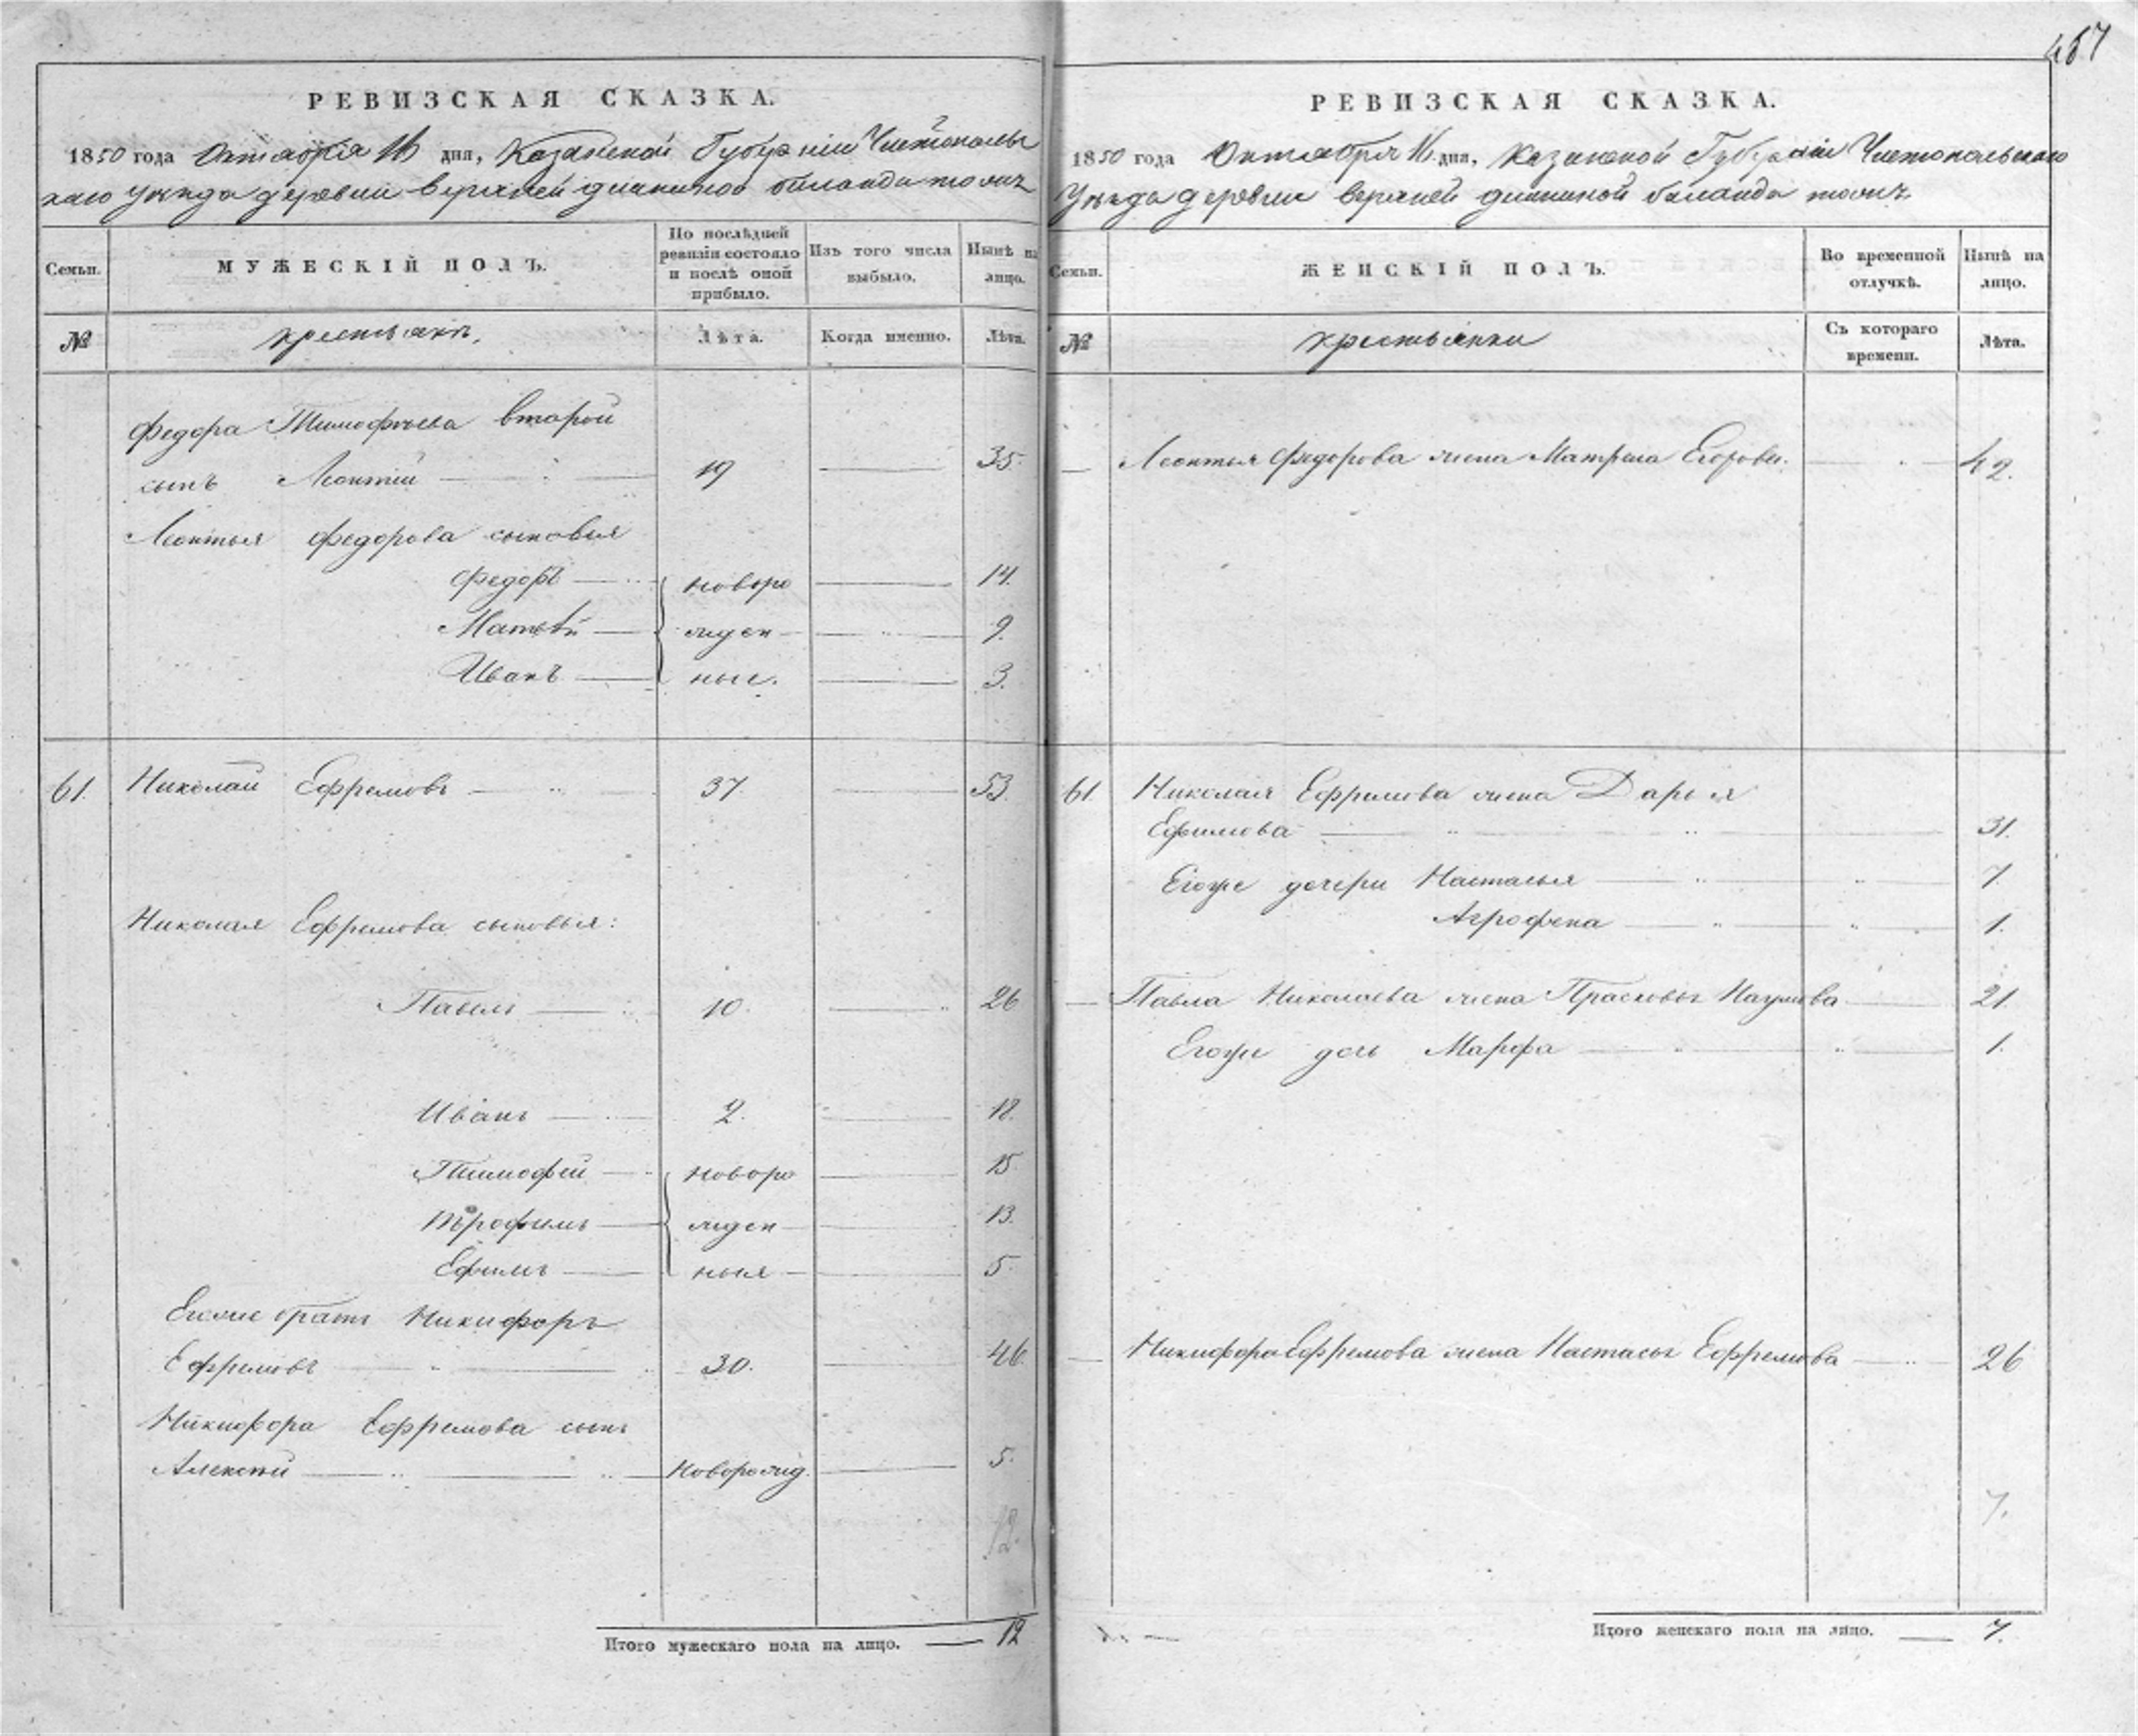 457
РЕВИЗСКАЯ СКАЗКА.
1850 года Октября 16 дня, Казанской Губерніи Чистопольс
каго Уѣзда деревни верхней
Семьи.
МУЖЕСКІЙ ПОЛЪ.
По послѣдней ревизіи состояло и послѣ оной прибыло.
Изъ того числа выбыло.
Нынѣ на лицо.
№
крестьянъ,
Лѣта.
Когда именно.
Лѣта.
Федора Тимофѣева второй
сынъ Леонтій 19 35.
Леонтья Федорова сыновья
Федоръ новоро 14.
Матвѣй жден 9.
Иванъ ные. 3.
61. Николай Ефремовъ 37. 53.
Николая Ефремова сыновья:
Павелъ 10. 26
Иванъ 2. 18.
Тимофей новоро 15
Трофимъ жден 13.
Ефимъ ныя 5.
Егоже братъ Никифоръ
Ефремовъ 30. 46.
Никифора Ефремова сынъ
Алексѣй новорожд. 5.
12.
Итого мужескаго пола на лицо. 12
РЕВИЗСКАЯ СКАЗКА.
1850 года Октября 16 дня, Казанской Губерніи Чистопольскаго
Уѣзда деревни верхней
Семьи.
ЖЕНСКІЙ ПОЛЪ.
Во временной отлучкѣ.
Нынѣ на лицо.
№
крестьянки
Съ котораго времени.
Лѣта.
Леонтья Федорова жена Матрена Егорова 42.
61. Николая Ефремова жена Дарья
Ефимова 31.
Егоже дочери Настасья 7.
Агрофена 1.
Павла Николаева жена Прасковья Наумова 21.
Егоже дочь Марфа 1.
Никифора Ефремова жена Настасья Ефремова 26
7.
Итого женскаго пола на лицо. 7.